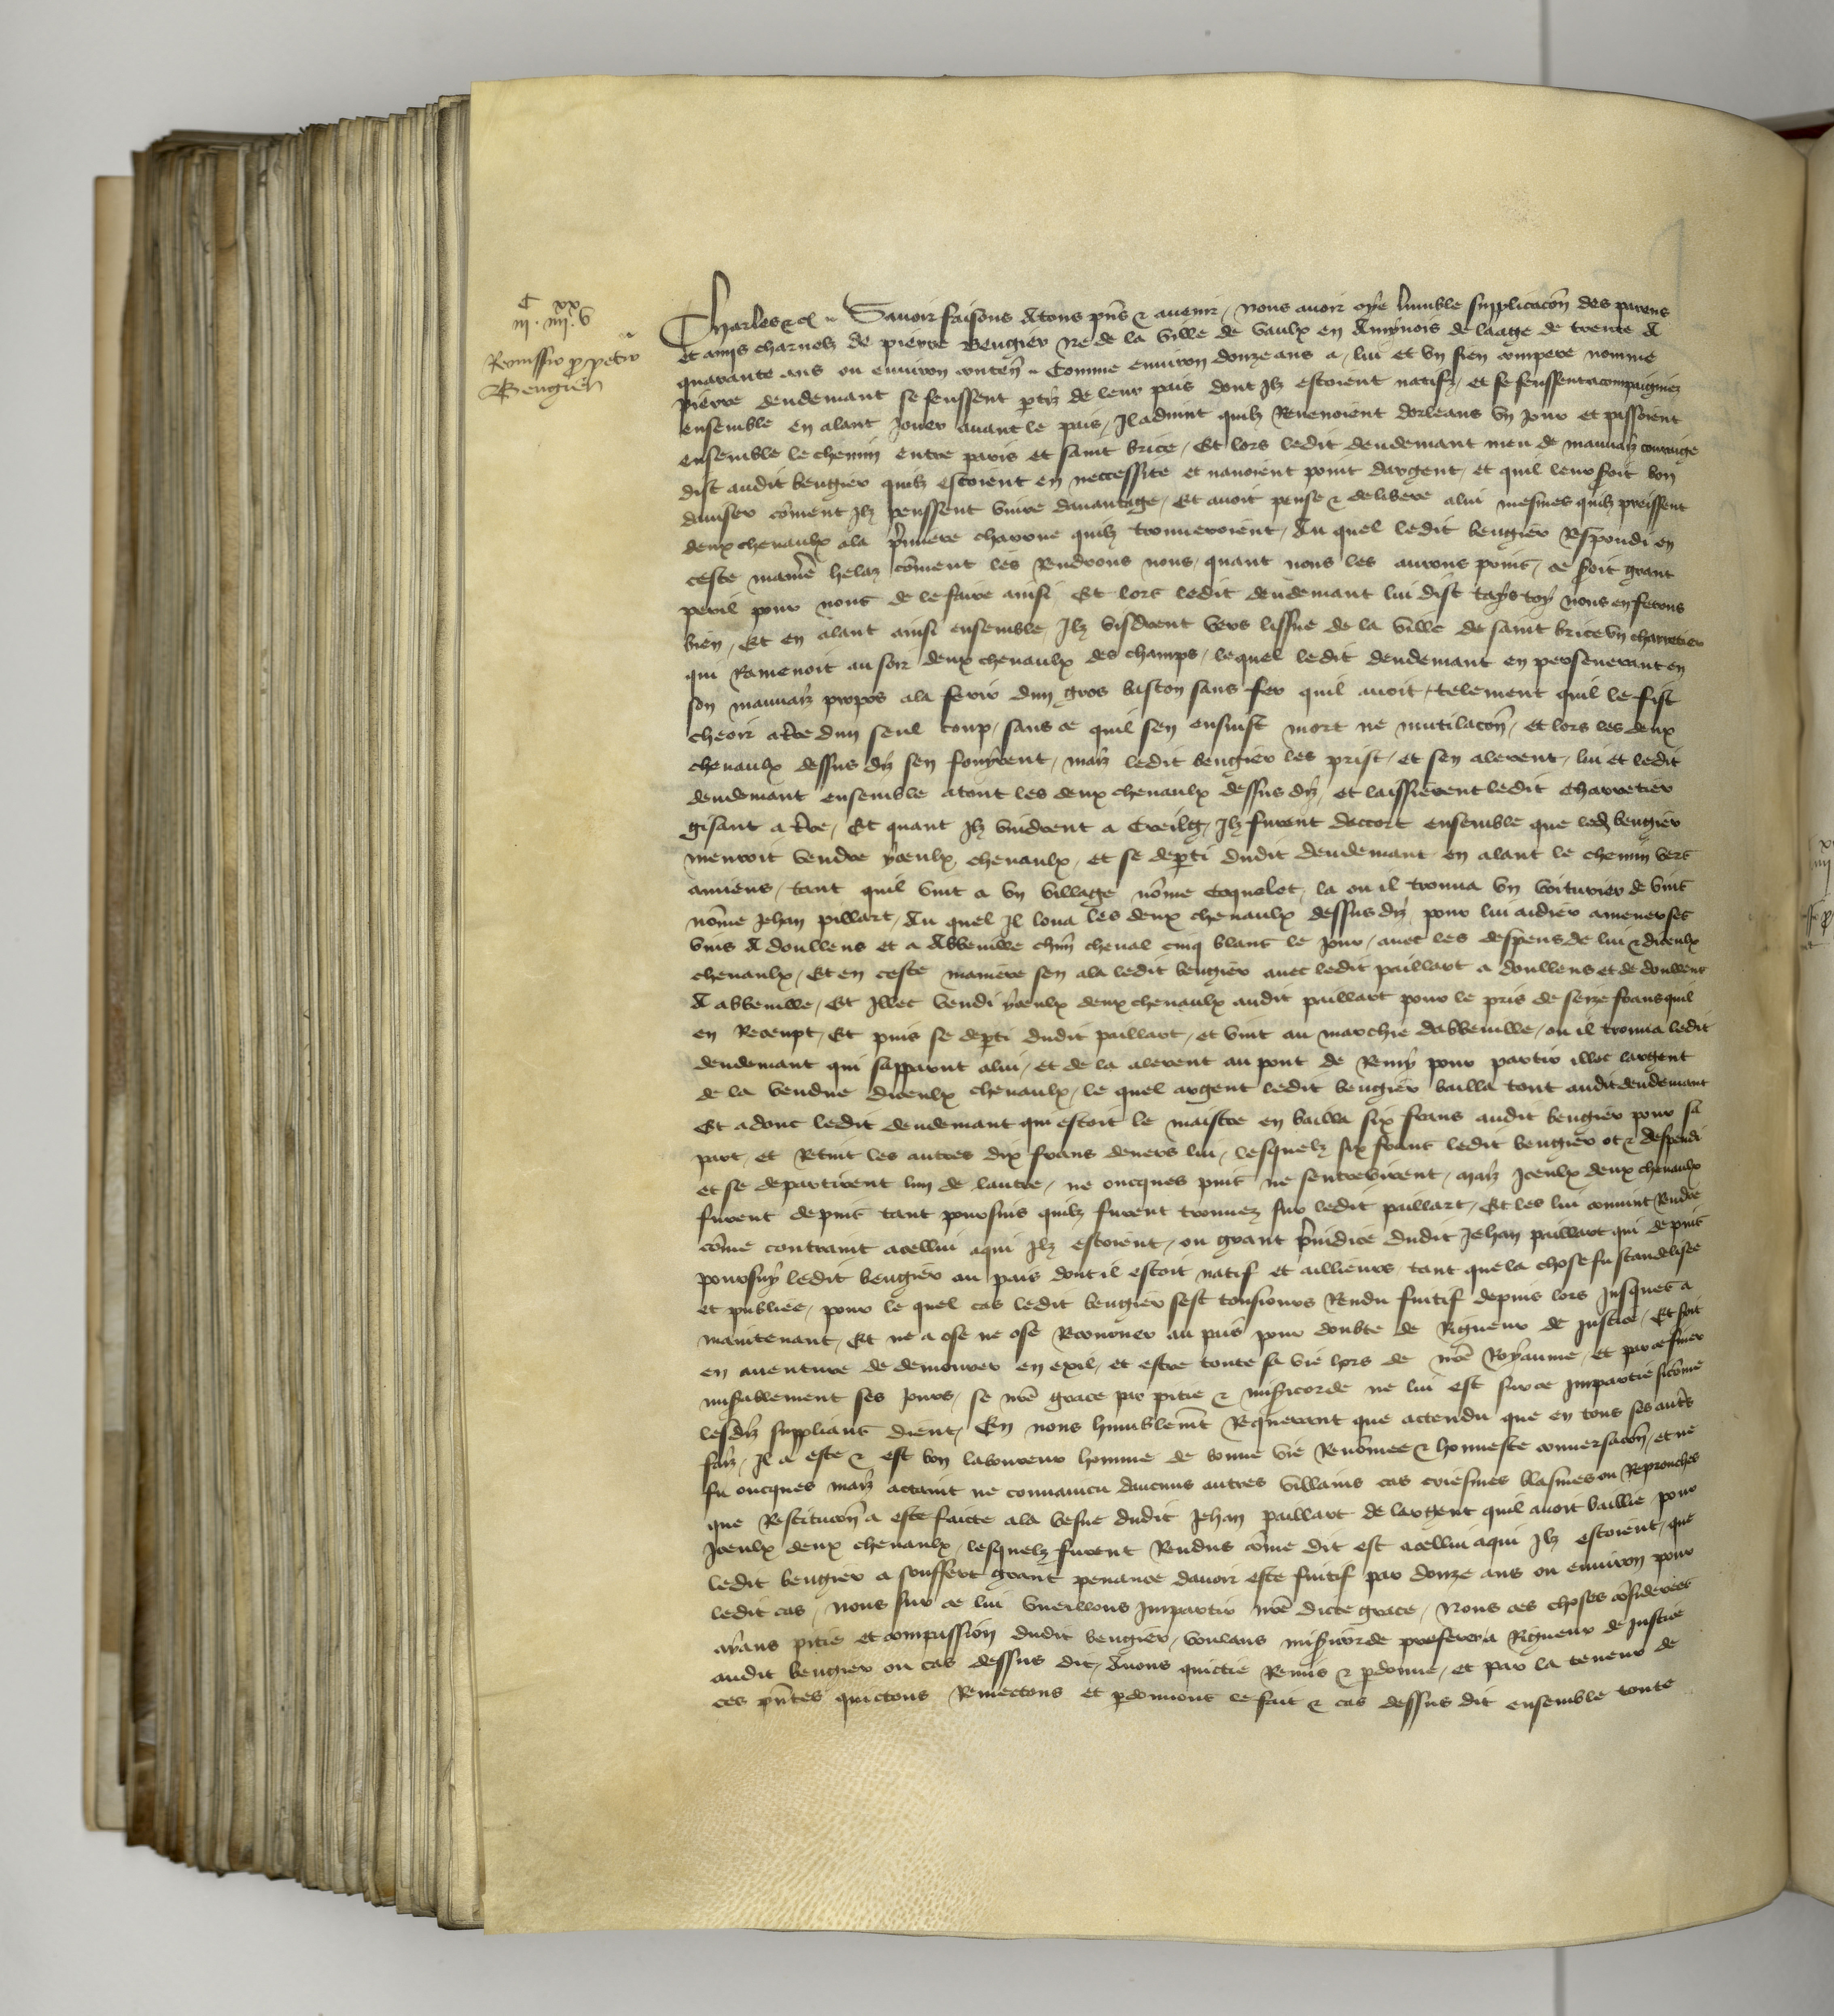 C XX
III. IIII. V
Remissio pro petro
Beugier
Charles etc. Savoir faisons A tous pns et avenir, nous avoir oye lumble supplicacon des parens
et amis charnelz de pierre Beugier ne de la ville de vaulx en Amynois de laage de trente A
quarante ans ou environ conten Comme environ douze ans a, lui et un sien compere nomme
pierre dendemant se feussent ptiz de leur pais dont Ilz estoient natifz, et se feussent acompaigniez
ensemble en alant jouer avant le pais, Il advint quilz Revenoient dorleans un jour et passoient
ensemble le chemin entre paris et saint brice, Et lors ledit dendemant meu de mauvaiz couraige
dist audit beugier quilz estoient en neccessite et navoient point dargent, et quil leur soit bon
daviser coment Ilz peussent vivre davantage, Et avoit pense et delibere a lui mesmes quilz preissent
deux chevaulx a la pmiere charrue quilz trouveroient, Au quel ledit beugier Respondi en
ceste maniere helaz coment les Rendrons nous, quant nous les aurons prins, ce soit grant
peril pour nous de le faire ainsi Et lors ledit dendemant lui dist tays toy nous en ferons
bien, Et en alant ainsi ensemble, Ilz visdrent vers lissue de la ville de saint brice un charretier
qui Ramenoit au soir deux chevaulx des champs, lequel ledit dendemant en perseverant en
son mauvaiz propos ala ferir dun gros baston sans fer quil avoit, telement quil le fist
cheoir a tre dun seul coup, sans ce quil sen ensuist mort ne mutilacon, et lors les deux
chevaulx dessus diz sen fouyrent, maiz ledit beugier les prist, et sen alerent, lui et ledit
dendemant ensemble a tout les deux chevaulx dessus diz, et laissierent ledit charretier
gisant a tre, Et quant Ilz vindrent a Creilg, Ilz furent daccort ensemble que led beugier
menroit vendre yceulx chevaulx, et se depti dudit dendemant en alant le chemin vers
amiens, tant quil vint a un village nome Coquelet, la ou il trouva un voiturier de vins
nome Jehan paillart, Au quel Il loua les deux chevaulx dessus diz pour lui aidier a mener ses
vins A doullens et a Abbeville chun cheval cinq blans le jour, avec les despens de lui et diceulx
chevaulx, Et en ceste maniere sen ala ledit beugier avec ledit paillart a doullens et de doullens
A abbeville, Et Illec vendi yceulx deux chevaulx audit paillart pour le pris de seize frans quil
en Receupt, Et puis se depti dudit paillart, et vint au marchie dabbeville, ou il trouva ledit
dendemant qui sapparut a lui, et de la alerent au pont de Remy pour partir illec largent
de la vendue diceulx chevaulx, le quel argent ledit beugier bailla tout audit dendemant
Et adonc ledit dendemant qui estoit le maistre en bailla six frans audit beugier pour sa
part, et Retint les autres dix frans devers lui, lesquelz six frans ledit beugier ot et despendi
et se departirent lun de lautre, ne oncques puis ne sentrevirent, maiz Iceulx deux chevaulx
furent depuis tant poursuis quilz furent trouvez sur ledit paillart, Et les lui convint Rendre
come contraint a cellui a qui Ilz estoient, ou grant preiudice dudit Jehan paillart qui depuis
poursuy ledit beugier au pais dont il estoit natif et ailleurs, tant que la chose fu scandelisee
et publiee, pour le quel cas ledit beugier sest tousiours Rendu fuitif depuis lors jusques a
maintenant, Et ne a ose ne ose Retourner au pais pour doubte de Rigueur de justice, Et soit
en aventure de demourer en exil, et estre toute sa vie hors de nre Royaume, et par ce finer
misablement ses jours, se nre grace par pitie et misicorde ne lui est sur ce Impartie si come
lesdiz supplians dient, En nous humblemt Requerant que actendu que en tous ses autres
faiz, Il a este et est bon laboureur homme de bonne vie Renomee et honneste conversacon, et ne
fu oncques maiz actaint ne convaincu daucuns autres villains cas criesmes blasmes ou Reprouches
que Restitucon a este faicte a la vesve dudit Jehan paillart de largent quil avoit baillie pour
Iceulx deux chevaulx, lesquelz furent Rendus come dit est a cellui a qui Ilz estoient, que
ledit beugier a souffert grant penance davoir este fuitif par douze ans ou environ pour
ledit cas, nous sur ce lui vueillons Impartir nre dicte grace, Nous ces choses considerees
ayans pitie et compassion dudit beugier, voulans misicorde preferer a Rigueur de justice
audit beugier ou cas dessus dit, Avons quictie Remis et pdonne, et par la teneur de
ces pntes quictons Remectons et pdonnons le fait et cas dessus dit ensemble toute